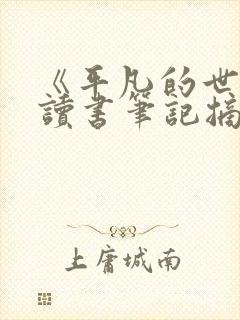 《平凡的世
讀書筆記摘
上庸城南